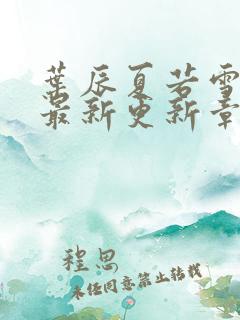 叶辰夏若雪
最新更新章
程思
未经同意禁止转载